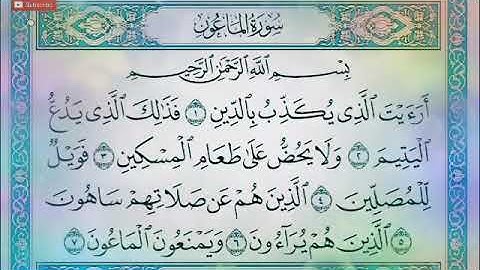 Subscribe
سُورَةُ المَاعُونِ
بِسْمِ اللَّهِ الرَّحْمَٰنِ الرَّحِيمِ
أَرَءَيْتَ الَّذِي يُكَذِّبُ بِالدِّينِ ١ فَذَٰلِكَ الَّذِي يَدُعُّ
الْيَتِيمَ ٢ وَلَا يَحُضُّ عَلَىٰ طَعَامِ الْمِسْكِينِ ٣ فَوَيْلٌ
لِّلْمُصَلِّينَ ٤ الَّذِينَ هُمْ عَن صَلَاتِهِمْ سَاهُونَ
٥ الَّذِينَ هُمْ يُرَآءُونَ ٦ وَيَمْنَعُونَ الْمَاعُونَ ٧